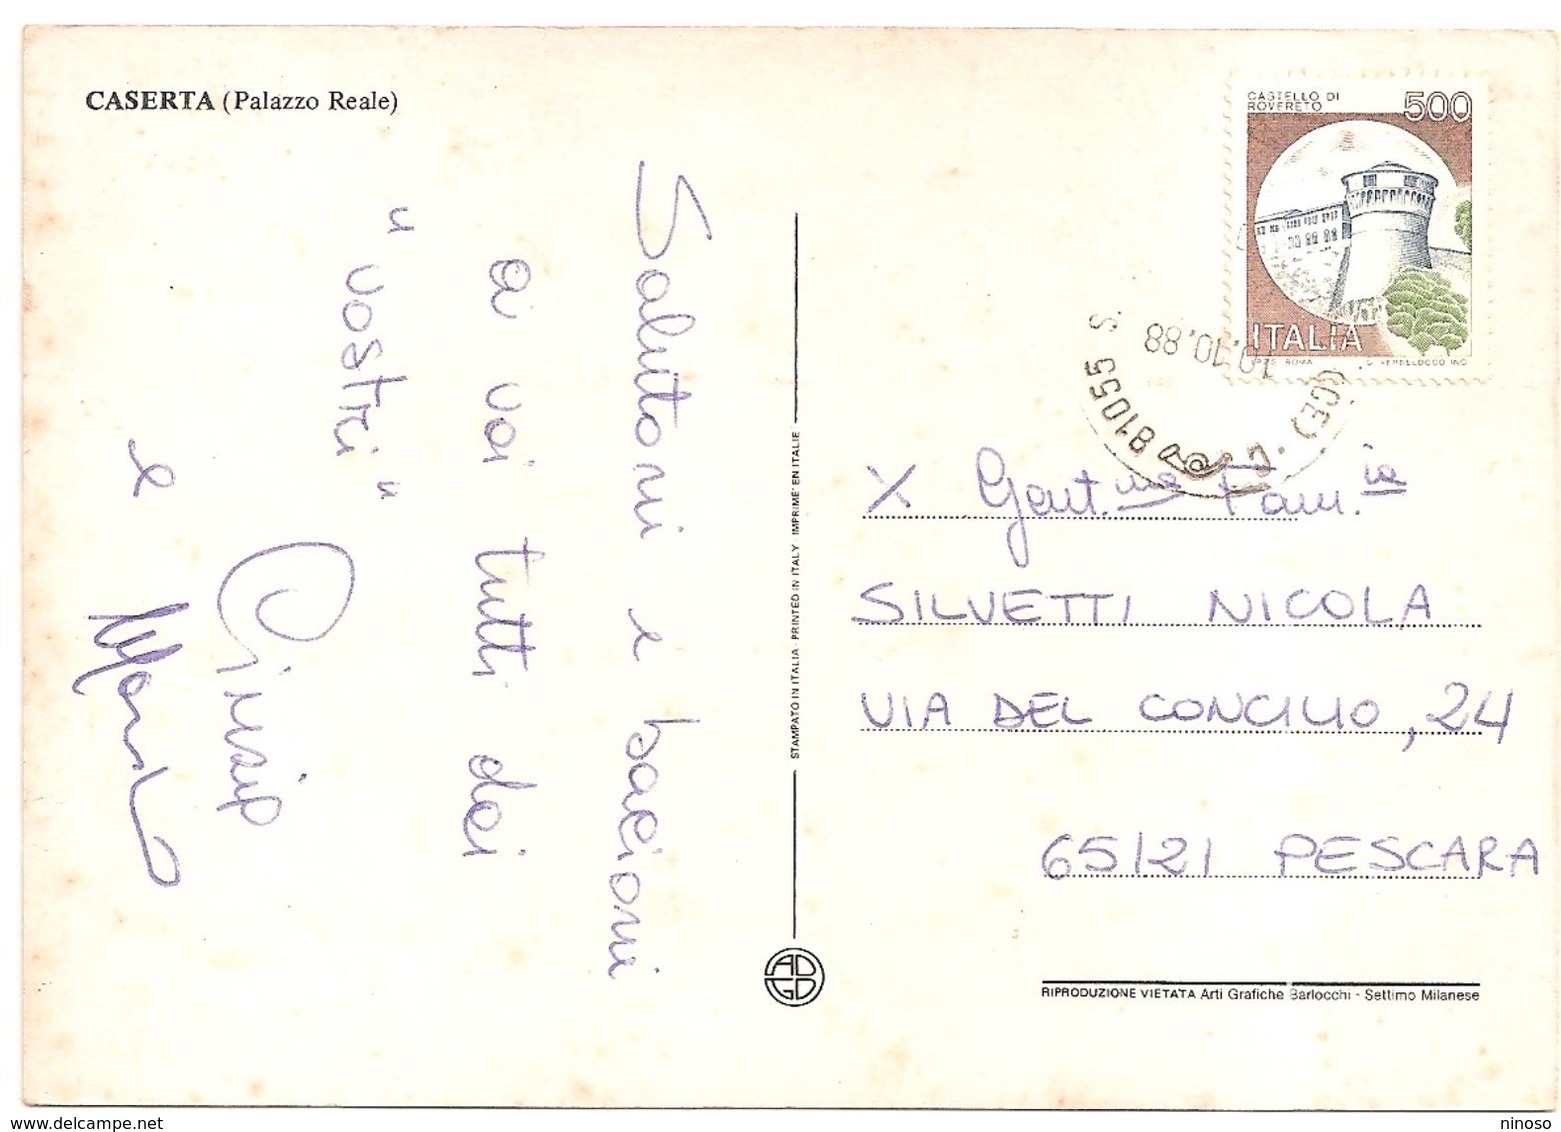 CASERTA (Palazzo Reale)
Salutoni e bacioni
a voi tutti dai
" vostri "
e
STAMPATO IN ITALIA - PRINTED IN ITALY IMPRIMÉ EN ITALIE
ADGD
CASTELLO DI
ROVERETO
500
ITALIA
I.P.Z.S. ROMA
10.10.88
81055 S.
(CE)
X Gent.ma Fam.ia
SILVETTI NICOLA
VIA DEL CONCILIO, 24
65121 PESCARA
RIPRODUZIONE VIETATA Arti Grafiche Barlocchi - Settimo Milanese
www.delcampe.net
ninoso